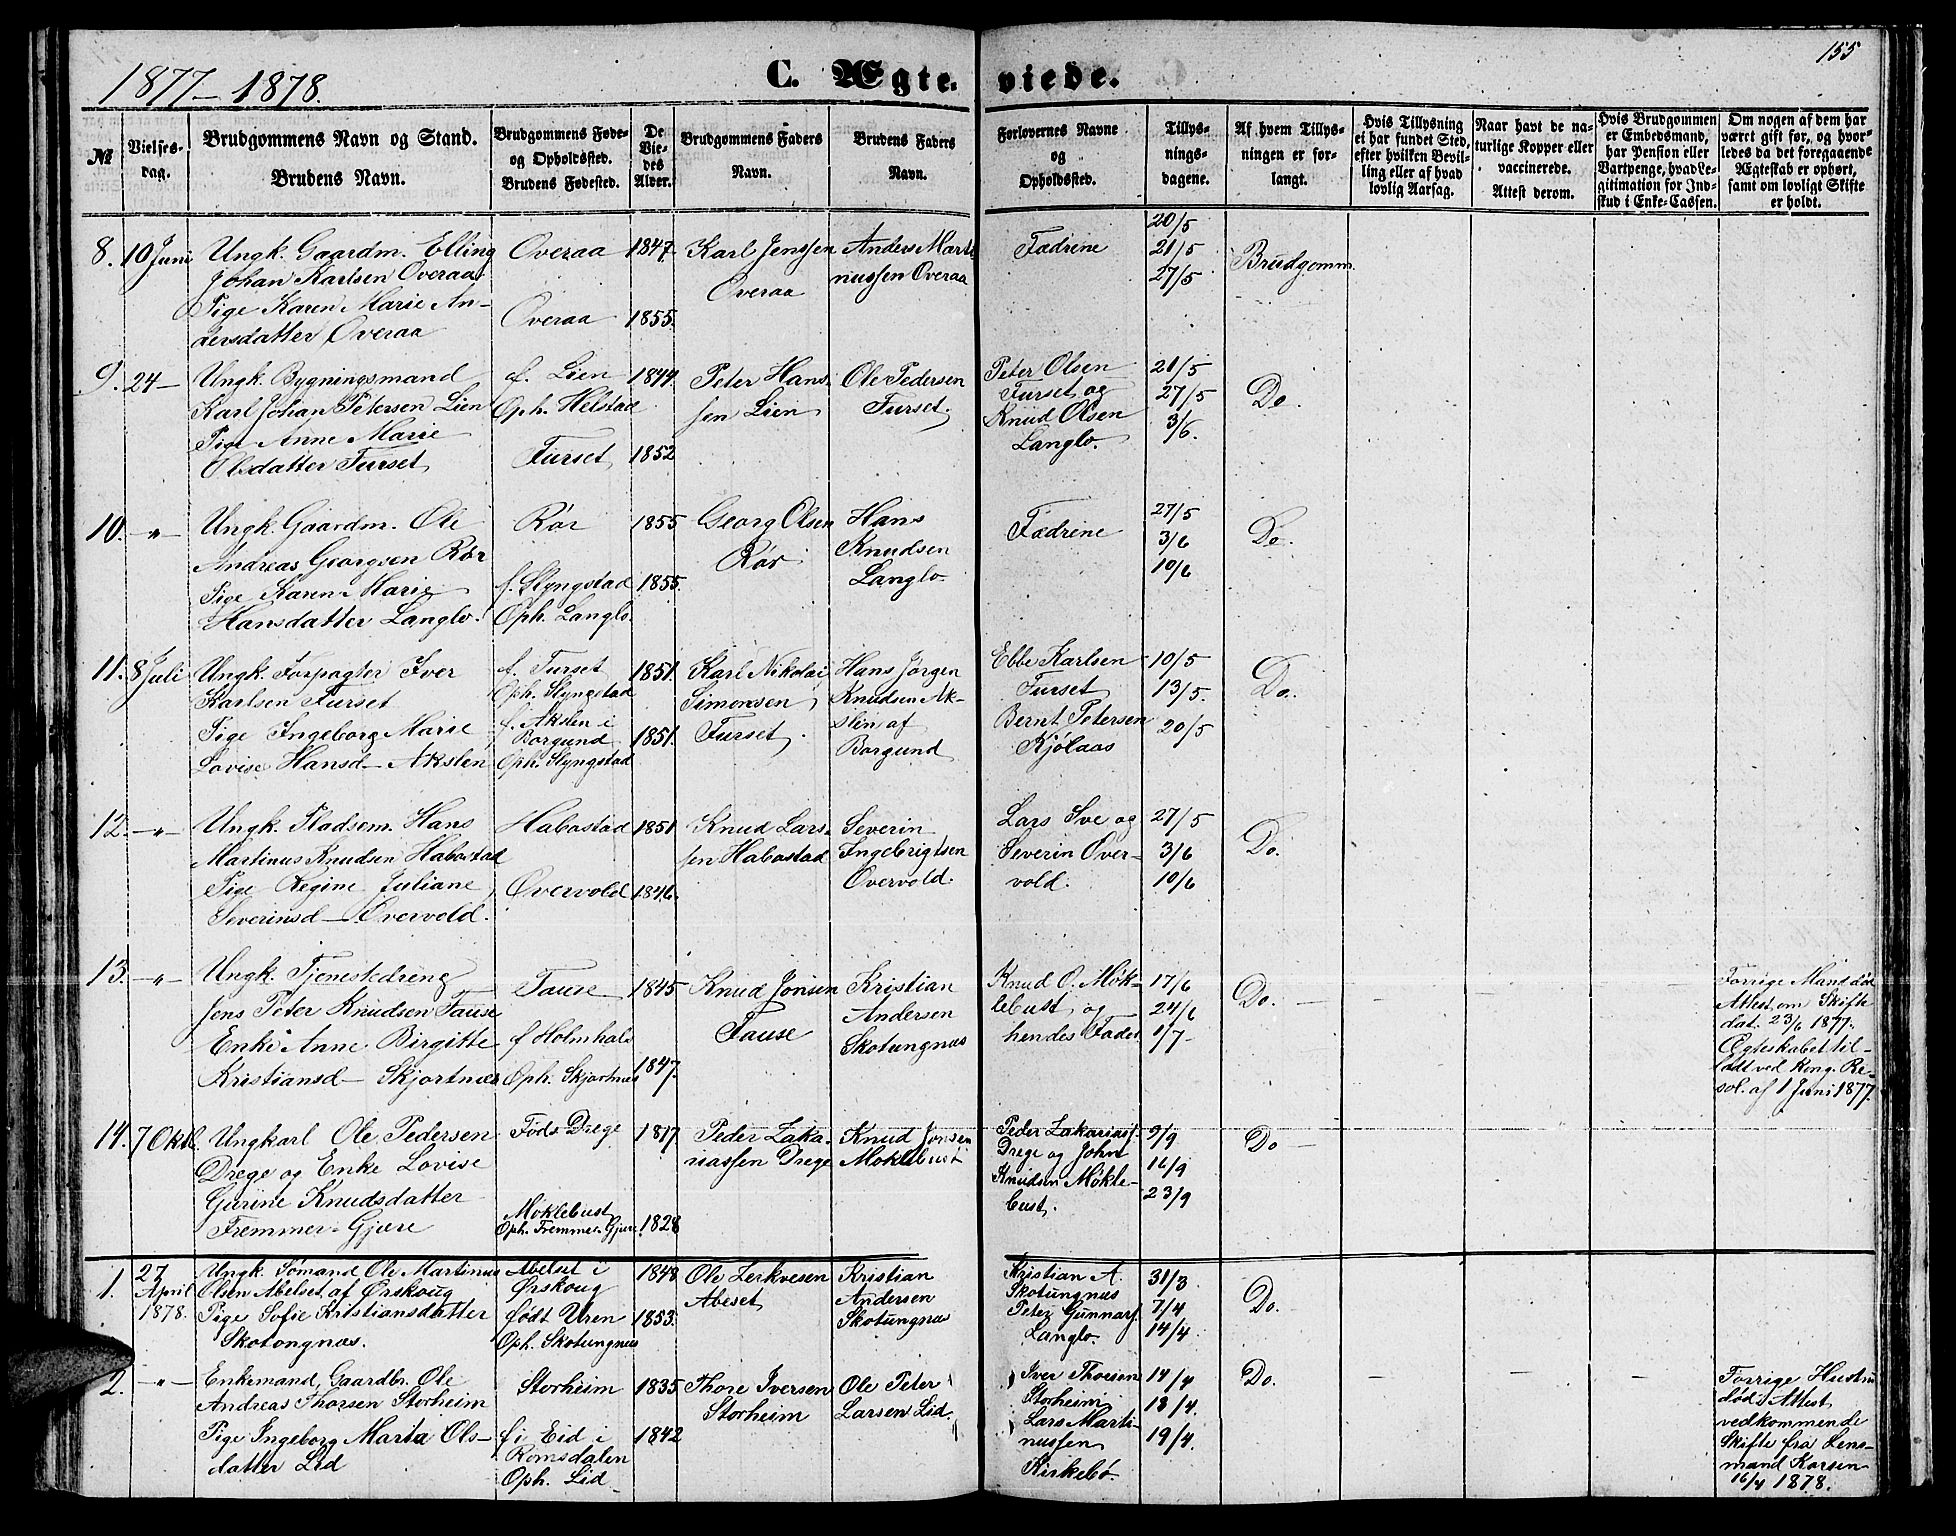 155
1877–1878.
C. Ægteviede.
№
Vielses-
dag.
Brudgommens Navn og Stand.
Brudens Navn.
Brudgommens Føde-
og Opholdssted.
Brudens Fødested.
De
Vie-
des
Alder.
Brudgommens Faders
Navn.
Brudens Faders
Navn.
Forlovernes Navne
og
Opholdssted.
Tillys-
nings-
dagene.
Af hvem Tillys-
ningen er for-
langt.
Hvis Tillysning
ei har fundet Sted,
efter hvilken Bevil-
ling eller af hvad
lovlig Aarsag.
Naar havt de na-
turlige Kopper eller
vaccinerede.
Attest derom.
Hvis Brudgommen
er Embedsmand,
har Pension eller
Vartpenge, hvad Le-
gitimation for Ind-
skud i Enke-Cassen.
Om nogen af dem har
været gift før, og hvor-
ledes da det foregaaende
Ægteskab er ophørt,
samt om lovligt Skifte
er holdt.
8. 10 Juni
Ungk. Gaardm. Elling
Johan Karlsen Overaa
Pige Karen Marie An-
dersdatter Overaa
Overaa
Overaa
1847.
1855.
Karl Jenssen
Overaa
Anders Marti
nussen Overaa
Fædrene
20/5
21/5
27/5
Brudgomm.
9. 24 –
Ungk. Bygningsmand
Karl Johan Petersen Lien
Pige Anne Marie
Olsdatter Furset
f. Lien
Oph. Helstad
Furset
1844.
1852
Peter Hans-
sen Lien
Ole Pedersen
Furset.
Peter Olsen
Furset og
Knud Olsen
Langlo.
21/5
27/5
3/6.
Do.
10. –"–
Ungk. Gaardm. Ole
Andreas Georgsen Rør
Pige Karen Marie
Hansdatter Langlo.
Rør
f. Slyngstad
Oph. Langlo.
1855
1855.
Georg Olsen
Rør
Hans
Knudsen
Langlo.
Fædrene
27/5
3/6
10/6
Do.
11. 8 Juli
Ungk. Forpagter Iver
Karlsen Furset
Pige Ingeborg Marie
Lovise Hansd– Akslen
f. Furset
Oph. Slyngstad
f. Akslen i
Borgund
Oph. Slyngstad
1851.
1851.
Karl Nikolai
Simonsen
Furset.
Hans Jørgen
Knudsen Ak-
slen af
Borgund
Ebbe Karlsen
Furset
Bernt Petersen
Kjølaas
10/5
13/5.
20/5
Do.
12. –"–
Ungk. Pladsem. Hans
Martinus Knudsen Habostad
Pige Regine Juliane
Severinsd– Overvold.
Habostad
Overvold
1851
1846.
Knud Lars-
sen Habostad
Severin
Ingebrigtsen
Overvold.
Lars Sve og
Severin Over-
vold.
27/5
3/6
10/6
Do.
13. –"–
Ungk. Tjenestedreng
Jens Peter Knudsen Fause
Enke Anne Birgitte
Kristiansd– Skjortnes
Fause
f Holmhals
Oph. Skjortnes
1845
1847.
Knud Jonsen
Fause
Kristian
Andersen
Skotungnæs
Knud O. Møk-
lebust og
hendes Fader
17/6
24/6
1/7
Do. –
Forrige Mand død
Attest om Skifte
dat. 23/6 1877.
Ægteskabet til-
ladt ved Kong. Re-
sol. af 1 Juni 1877.
14. 7 Oktb.
Ungkarl Ole Pedersen
Drege og Enke Lovise
Gurine Knudsdatter
Fremmer-Gjære
Føds Drege
Møklebust
Oph. Fremmer-Gjære
1817
1828
Peder Zaka-
riassen Drege
Knud Jonsen
Møklebust
Peder Zakariass.
Drege og John
Knudsen Møkle-
bust.
9/9
16/9
23/9
Do –
1. 27
April
1878.
Ungk. Sømand Ole Martinus
Olsen Abelset af Ørskoug
Pige Sofie Kristiansdatter
Skotongnæs.
Abelset i
Ørskoug
født Uren
Oph. Skotungnæs
1848
1853.
Ole Lerkvesen
Abeset
Kristian
Andersen
Skotungnæs
Kristian A.
Skotungnæs
Peter Gunnars.
Langlo.
31/3
7/4
14/4.
Do.
2. –"–
Enkemand, Gaardbr. Ole
Andreas Thorsen Storheim
Pige Ingeborg Marta Ols-
datter Lid
Storheim
f. i Eid i
Romsdalen
Oph. Lid
1835
1842
Thore Iversen
Storheim
Ole Peter
Larsen Lid.
Iver Thoesen
Storheim
Lars Marti-
nussen
Kirkebø.
14/4
18/4.
19/4.
Do.
Forrige Hustru
død. Attest
vedkommende
Skifte fra Lens-
mand Korsen
16/4 1878.